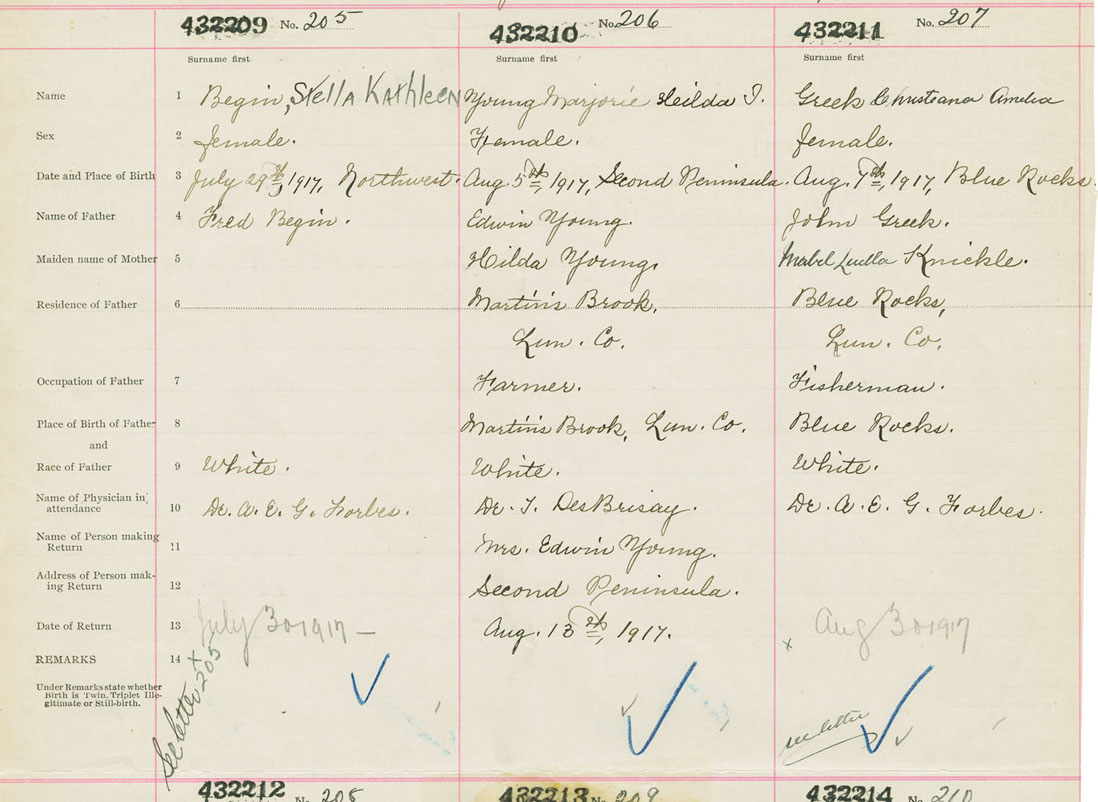 432209 No. 205
432210 No. 206
432211 No. 207
Surname first Surname first Surname first
Name 1 Begin, Stella Kathleen Young Marjorie Heilda I. Greek Christeana Amelia
Sex 2 female. Female. female.
Date and Place of Birth 3 July 29th, 1917, Northwest. Aug. 5th, 1917, Second Peninsula. Aug. 7th, 1917, Blue Rocks.
Name of Father 4 Fred Begin. Edwin Young. John Greek.
Maiden name of Mother 5 Hilda Young. Mabel Luella Knickle.
Residence of Father 6 Martin's Brook, Blue Rocks,
Lun. Co. Lun. Co.
Occupation of Father 7 Farmer. Fisherman.
Place of Birth of Father 8 Martin's Brook, Lun. Co. Blue Rocks.
and
Race of Father 9 White. White. White.
Name of Physician in attendance 10 Dr. A. E. G. Forbes. Dr. T. DesBrisay. Dr. A. E. G. Forbes.
Name of Person making Return 11 Mrs. Edwin Young.
Address of Person mak-
ing Return 12 Second Peninsula.
Date of Return 13 July 30 1917 — Aug. 13th, 1917. x Aug 30 1917
REMARKS 14
Under Remarks state whether
Birth is Twin, Triplet Ille-
gitimate or Still-birth.
See letter x 205
see letter
432212 No. 208
432213 No. 209
432214 No. 210